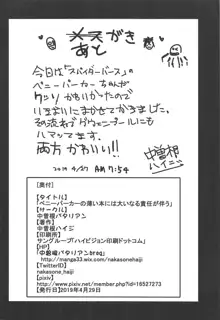 あとがき
今回は「スパイダーバース」の
ペニーパーカーちゃんが
かわいかったので
いきおいにまかせてかきました。
その流れでグウェンプールにも
ハマってます。
両方かわいい!!
2019 4/27 AM 7:54
中曽根
ハイジ
【奥付】
【タイトル】
「ペニーパーカーの薄い本には大いなる責任が伴う」
【サークル】
中曽根バタリアン
【著作】
中曽根ハイジ
【印刷所】
サングループ/ハイビジョン印刷ドットコム
【HP】
「中曽根バタリアンBROG」
http://manga33.wix.com/nakasonehaiji
【TwitterID】
nakasone_haiji
【pixiv】
http://www.pixiv.net/member.php?id=16527273
【発行日】2019年4月29日